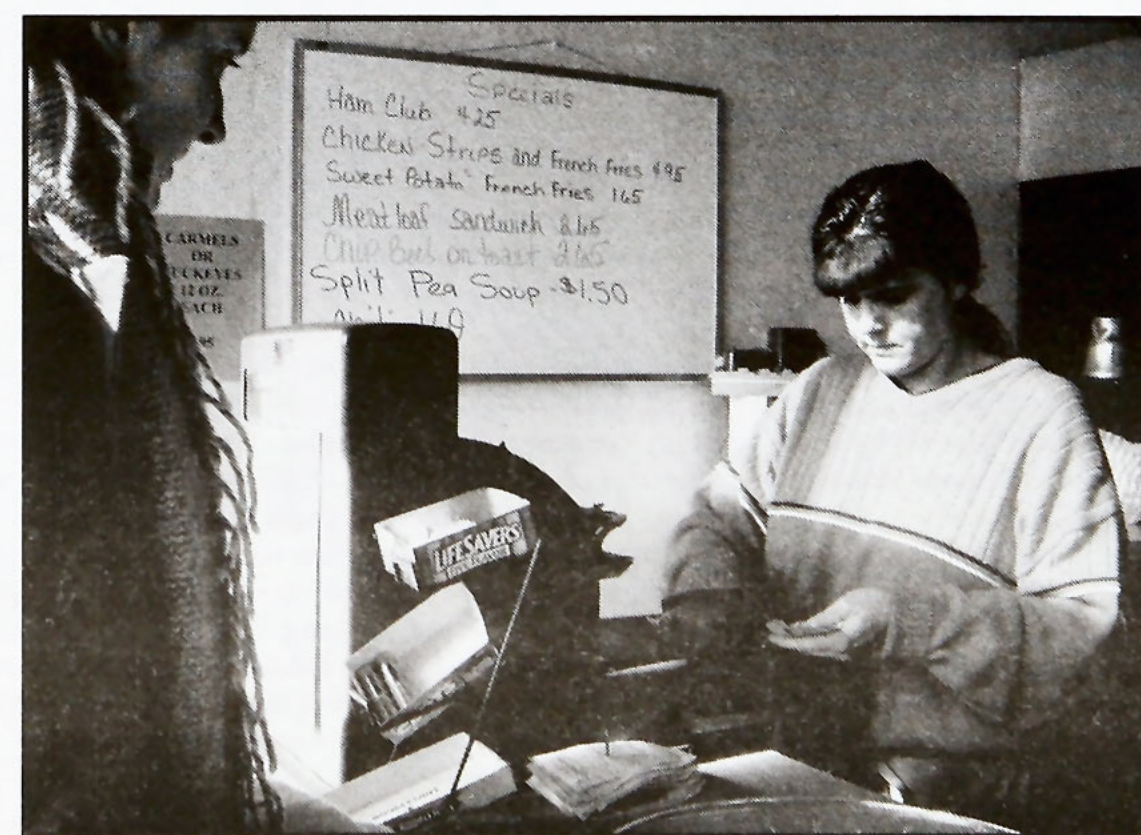 Specials
Ham Club 4.25
Chicken Strips and French Fries 4.95
Sweet Potato French Fries 1.65
Meatloaf sandwich 2.65
Chip Beef on toast 2.65
Split Pea Soup - $1.50
CARMELS
OR
UCKEYES
12 OZ.
EACH
95
LIFESAVERS
FIVE FLAVOR